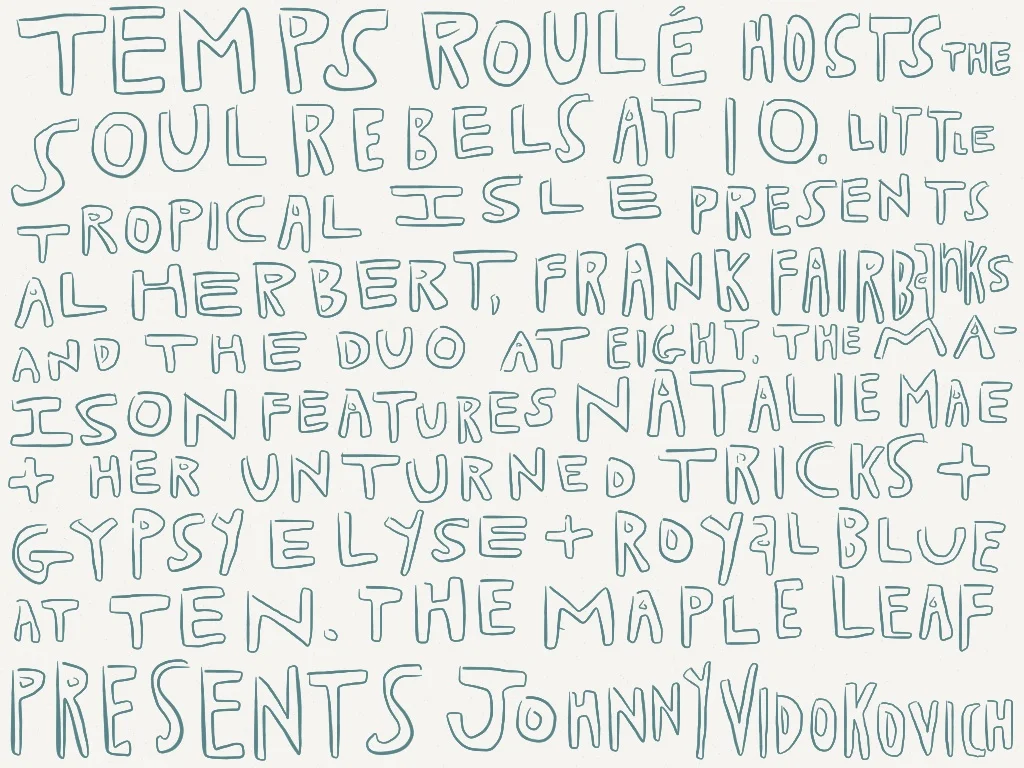 TEMPS ROULÉ HOSTS THE
SOUL REBELS AT 10. LITTLE
TROPICAL ISLE PRESENTS
AL HERBERT, FRANK FAIRBaNKS
AND THE DUO AT EIGHT. THE MA-
ISON FEATURES NATALIE MAE
+ HER UNTURNED TRICKS +
GYPSY ELYSE + ROYaL BLUE
AT TEN. THE MAPLE LEAF
PRESENTS JOHNNY VIDOKOVICH